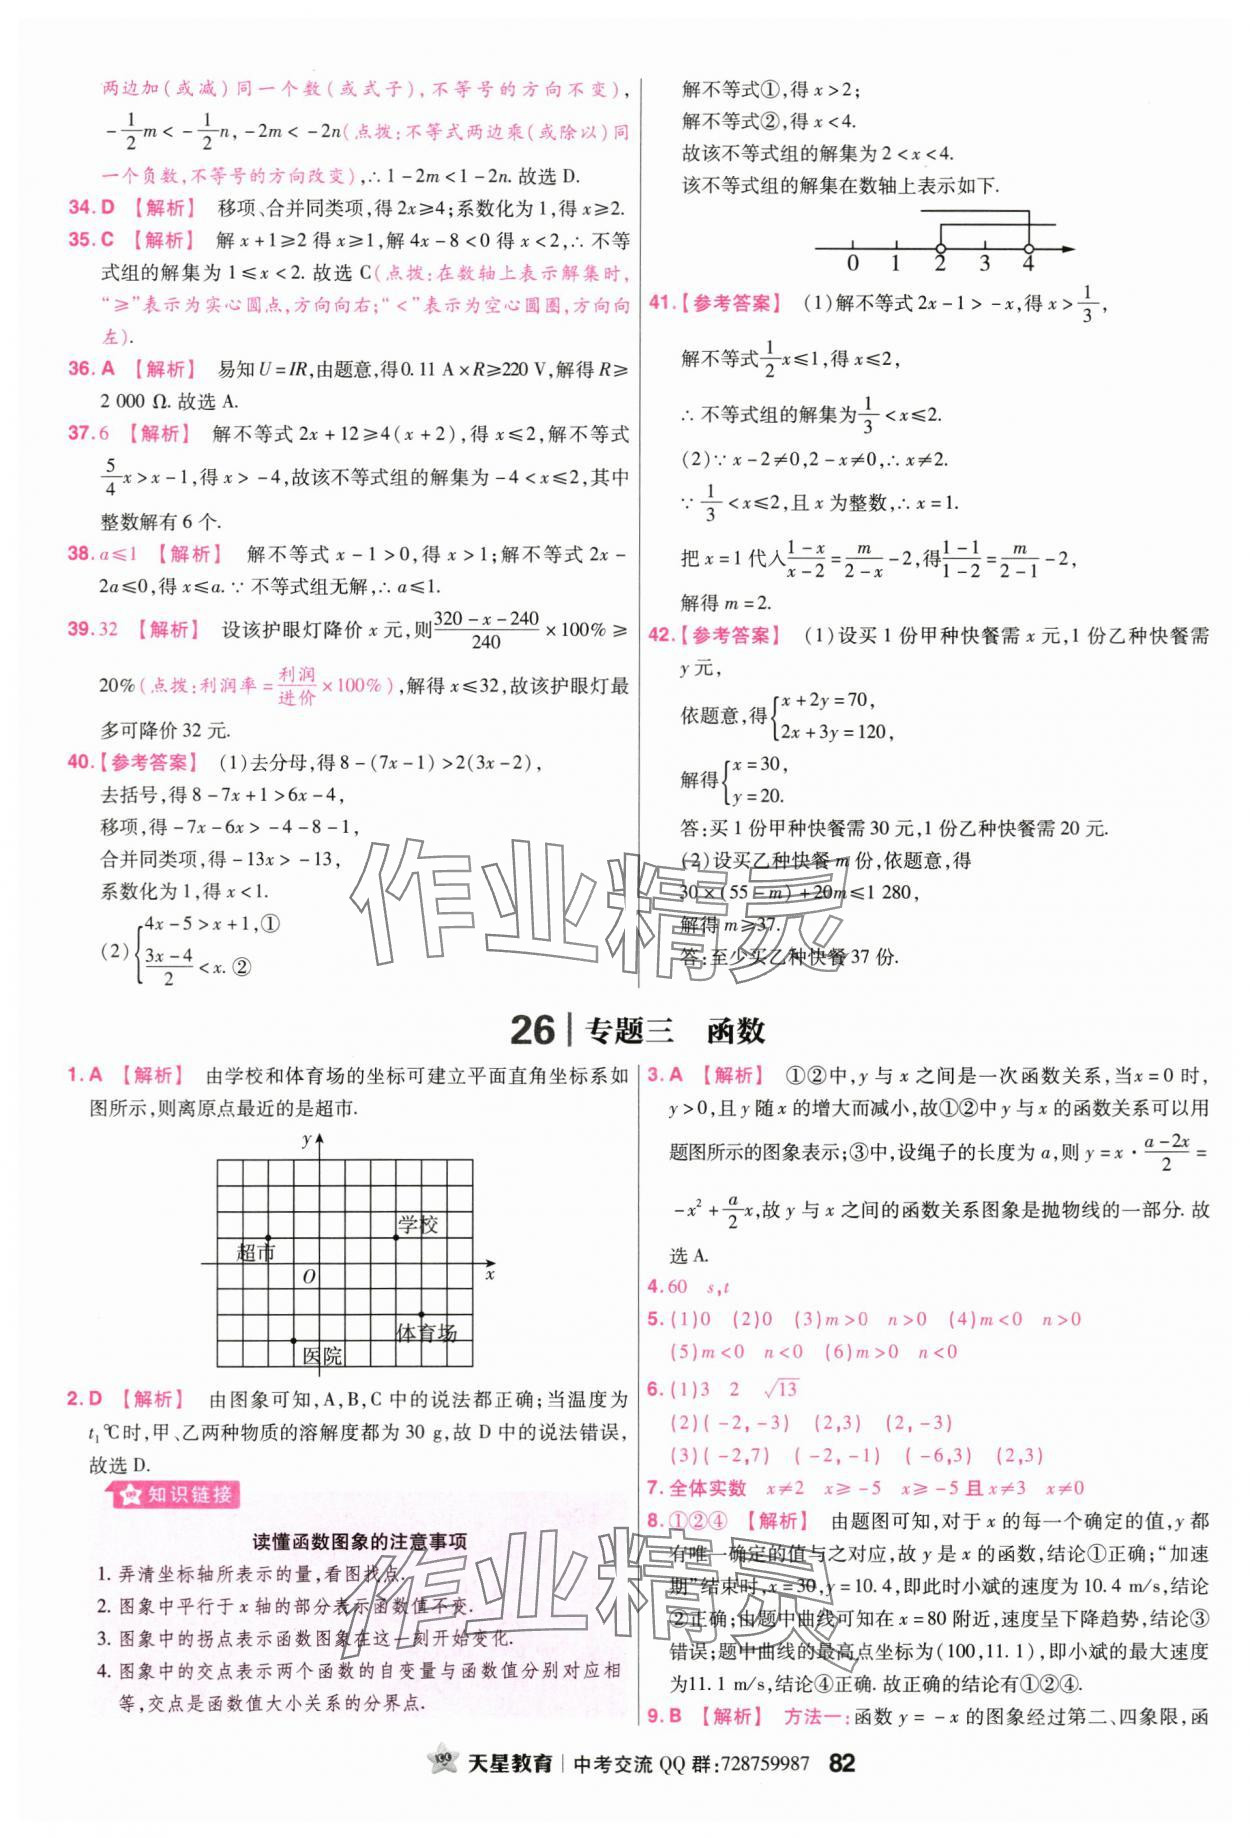 两边加(或减)同一个数(或式子),不等号的方向不变),
-1/2m<-1/2n,-2m<-2n(点拨:不等式两边乘(或除以)同
一个负数,不等号的方向改变),∴1-2m<1-2n.故选D.
34.D 【解析】 移项、合并同类项,得2x≥4;系数化为1,得x≥2.
35.C 【解析】 解x+1≥2得x≥1,解4x-8<0得x<2,∴不等
式组的解集为1≤x<2.故选C(点拨:在数轴上表示解集时,
“≥”表示为实心圆点,方向向右;“<”表示为空心圆圈,方向向
左).
36.A 【解析】 易知U=IR,由题意,得0.11 A×R≥220 V,解得R≥
2 000 Ω.故选A.
37.6 【解析】 解不等式2x+12≥4(x+2),得x≤2,解不等式
5/4x>x-1,得x>-4,故该不等式组的解集为-4<x≤2,其中
整数解有6个.
38.a≤1 【解析】 解不等式x-1>0,得x>1;解不等式2x-
2a≤0,得x≤a.∵不等式组无解,∴a≤1.
39.32 【解析】 设该护眼灯降价x元,则(320-x-240)/240×100%≥
20%(点拨:利润率=利润/进价×100%),解得x≤32,故该护眼灯最
多可降价32元.
40.【参考答案】 (1)去分母,得8-(7x-1)>2(3x-2),
去括号,得8-7x+1>6x-4,
移项,得-7x-6x>-4-8-1,
合并同类项,得-13x>-13,
系数化为1,得x<1.
(2){4x-5>x+1,①
(3x-4)/2<x.②
解不等式①,得x>2;
解不等式②,得x<4.
故该不等式组的解集为2<x<4.
该不等式组的解集在数轴上表示如下.
0 1 2 3 4
41.【参考答案】 (1)解不等式2x-1>-x,得x>1/3,
解不等式1/2x≤1,得x≤2,
∴不等式组的解集为1/3<x≤2.
(2)∵x-2≠0,2-x≠0,∴x≠2.
∵1/3<x≤2,且x为整数,∴x=1.
把x=1代入(1-x)/(x-2)=m/(2-x)-2,得(1-1)/(1-2)=m/(2-1)-2,
解得m=2.
42.【参考答案】 (1)设买1份甲种快餐需x元,1份乙种快餐需
y元,
依题意,得{x+2y=70,
2x+3y=120,
解得{x=30,
y=20.
答:买1份甲种快餐需30元,1份乙种快餐需20元.
(2)设买乙种快餐m份,依题意,得
30×(55-m)+20m≤1 280,
解得m≥37.
答:至少买乙种快餐37份.
作业精灵
26 | 专题三 函数
1.A 【解析】 由学校和体育场的坐标可建立平面直角坐标系如
图所示,则离原点最近的是超市.
y
学校
超市
O x
体育场
医院
2.D 【解析】 由图象可知,A,B,C中的说法都正确;当温度为
t₁℃时,甲、乙两种物质的溶解度都为30 g,故D中的说法错误,
故选D.
知识链接
读懂函数图象的注意事项
1. 弄清坐标轴所表示的量,看图找点.
2. 图象中平行于x轴的部分表示函数值不变.
3. 图象中的拐点表示函数图象在这一刻开始变化.
4. 图象中的交点表示两个函数的自变量与函数值分别对应相
等,交点是函数值大小关系的分界点.
3.A 【解析】 ①②中,y与x之间是一次函数关系,当x=0时,
y>0,且y随x的增大而减小,故①②中y与x的函数关系可以用
题图所示的图象表示;③中,设绳子的长度为a,则y=x·(a-2x)/2=
-x²+a/2x,故y与x之间的函数关系图象是抛物线的一部分.故
选A.
4.60 s,t
5.(1)0 (2)0 (3)m>0 n>0 (4)m<0 n>0
(5)m<0 n<0 (6)m>0 n<0
6.(1)3 2 √13
(2)(-2,-3) (2,3) (2,-3)
(3)(-2,7) (-2,-1) (-6,3) (2,3)
7.全体实数 x≠2 x≥-5 x≥-5且x≠3 x≠0
8.①②④ 【解析】 由题图可知,对于x的每一个确定的值,y都
有唯一确定的值与之对应,故y是x的函数,结论①正确;“加速
期”结束时,x=30,y=10.4,即此时小斌的速度为10.4 m/s,结论
②正确;由题中曲线可知在x=80附近,速度呈下降趋势,结论③
错误;题中曲线的最高点坐标为(100,11.1),即小斌的最大速度
为11.1 m/s,结论④正确.故正确的结论有①②④.
9.B 【解析】 方法一:函数y=-x的图象经过第二、四象限,函
作业精灵
天星教育 | 中考交流QQ群:728759987 82